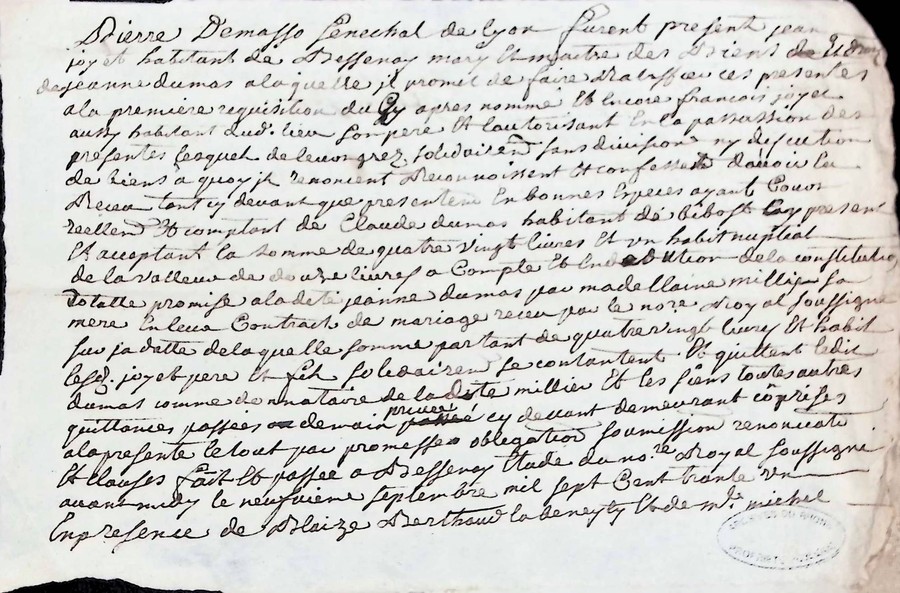 Pierre Demasso Senechal de Lyon furent present jean
joyet habitant de Bessenay mary et maitre des Biens de
de jeanne dumas a laquelle jl promet de faire Ratiffier ces presentes
a la premiere requisition du Cy apres nommé Et Encore francois joyet
aussy habitant dud.t lieu son pere Et Lautorisant En la passassion des
presentes lesquels de leurs grez solidairem sans division ny discution
de biens a quoy jls renoncent Reconnoissent Et confessent davoir Eu
Receu tant cy devant que presentem En bonnes Especes ayant Cour
reellem Et comptant de Claude dumas habitant de Bibost Cy present
Et acceptant la somme de quatre vingt livres Et vn habit nuptial
de la valleur de douze livres a Compte Et En dedution de la constitution
totalle promise a la dite jeanne dumas par madellaine millier sa
mere En leur Contract de mariage receu par le no.re Royal soussigne
sur sa datte de laquelle somme partant de quatre vingt livres Et habit
lesd. joyet pere Et fils solidairem se contantent Et quittent ledit
dumas comme donnataire de la dite millier Et les siens toutes autres
quittances passées de main privée cy devant demeurant comprises
a la presente le tout par promesse obligation soumission renonciatt
Et clauses fait Et passée a Bessenay Etude du no.re Royal soussigné
avant midy le neufvieme septembre mil sept Cent trante vn
En presence de Blaize Berthaud Et de m.re michel
ARCHIVES DU RHONE
PROPRIETE PUBLIQUE